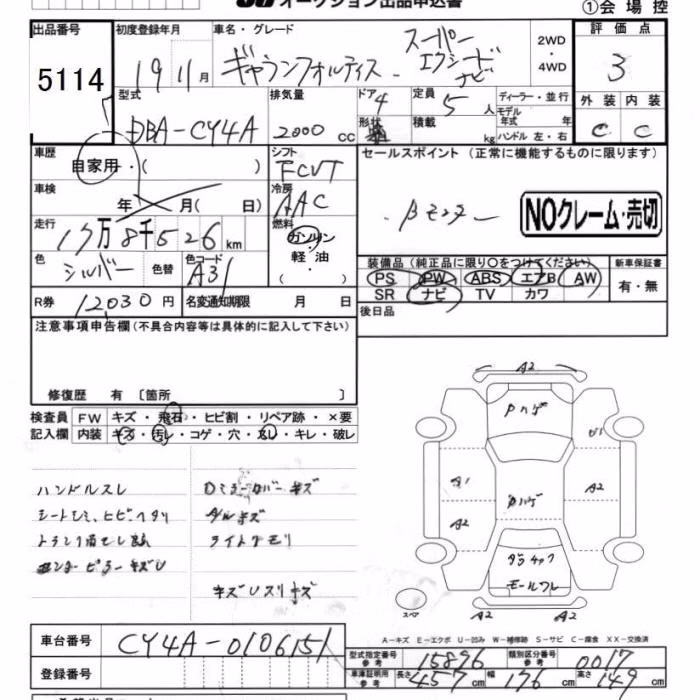 オークション出品申込書
①会場控
出品番号
5114
初度登録年月
19年11月
車名・グレード
ギャランフォルティス
スーパー
エクシード
ナビ
2WD
4WD
評価点
3
外装 内装
C C
型式
DBA-CY4A
排気量
2000 cc
ドア 4
形状
定員 5 人
積載 kg
ディーラー・並行
モデル年式 年
ハンドル 左・右
車歴
自家用・( )
シフト
FCVT
車検
年 月( 日)
冷房
AAC
走行
17万8千526km
燃料
ガソリン・軽油
( )
色
シルバー
色替
色コード
A31
R券 12,030円
名変通知期限 月 日
セールスポイント (正常に機能するものに限ります)
NOクレーム・売切
装備品(純正品に限り○をつけてください)
PS PW ABS エアB AW
SR ナビ TV カワ
新車保証書
有・無
後日品
注意事項申告欄(不具合内容等は具体的に記入して下さい)
修復歴 有 〔箇所 〕
検査員記入欄
FW キズ・飛石・ヒビ割・リペア跡・×要
内装 キズ・汚レ・コゲ・穴・スレ・キレ・破レ
ハンドルスレ
Dミラーカバーキズ
ライトクモリ
A2
A1
A2
A2
A2
A2
A2
スペア
A-キズ E-エクボ U-凹み W-補修跡 S-サビ C-腐食 XX-交換済
車台番号
CY4A-0106151
登録番号
型式指定番号 参考 15896
類別区分番号 参考 0017
車庫証明用 参考
長さ 457cm
幅 176cm
高さ 149cm